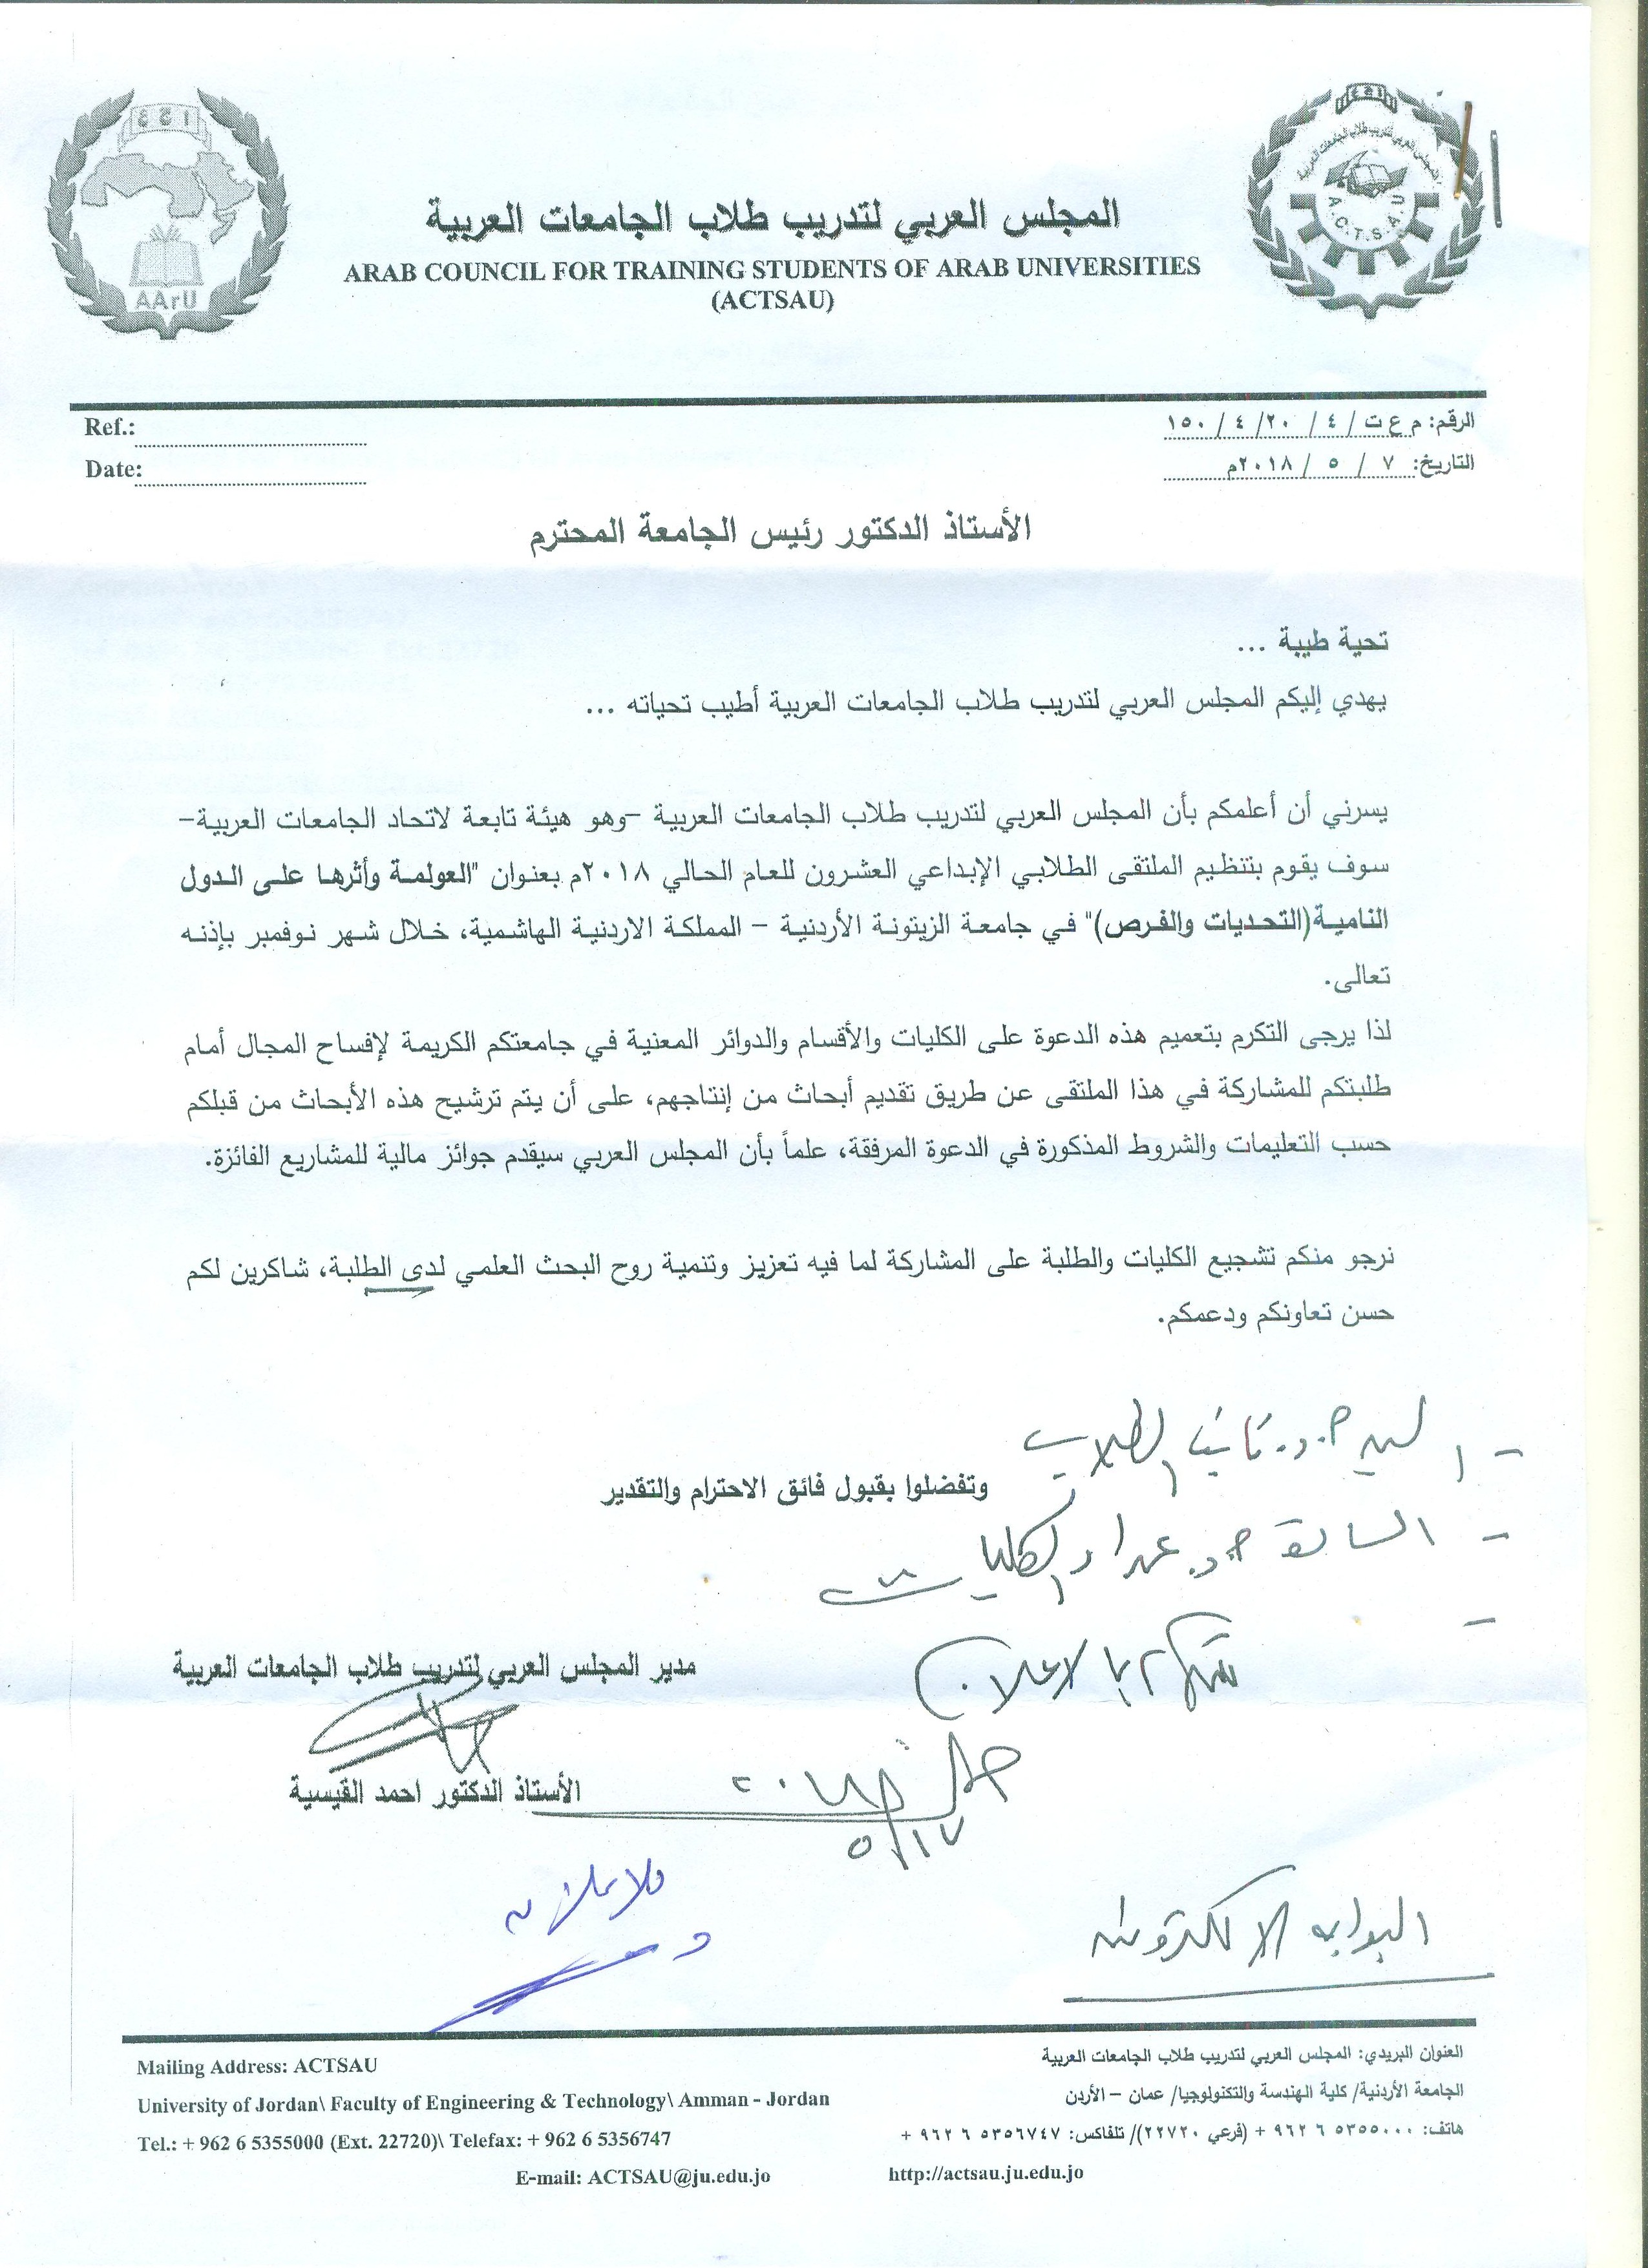 المجلس العربي لتدريب طلاب الجامعات العربية
ARAB COUNCIL FOR TRAINING STUDENTS OF ARAB UNIVERSITIES
(ACTSAU)
AArU
A.C.T.S.A.U
الرقم: م ع ت / ٤ / ٢٠ / ٤ / ١٥٠
Ref.:
التاريخ: ٧ / ٥ / ٢٠١٨م
Date:
الأستاذ الدكتور رئيس الجامعة المحترم
تحية طيبة ...
يهدي إليكم المجلس العربي لتدريب طلاب الجامعات العربية أطيب تحياته ...
يسرني أن أعلمكم بأن المجلس العربي لتدريب طلاب الجامعات العربية –وهو هيئة تابعة لاتحاد الجامعات العربية–
سوف يقوم بتنظيم الملتقى الطلابي الإبداعي العشرون للعام الحالي ٢٠١٨م بعنوان "العولمة وأثرها على الدول
النامية(التحديات والفرص)" في جامعة الزيتونة الأردنية – المملكة الاردنية الهاشمية، خلال شهر نوفمبر بإذنه
تعالى.
لذا يرجى التكرم بتعميم هذه الدعوة على الكليات والأقسام والدوائر المعنية في جامعتكم الكريمة لإفساح المجال أمام
طلبتكم للمشاركة في هذا الملتقى عن طريق تقديم أبحاث من إنتاجهم، على أن يتم ترشيح هذه الأبحاث من قبلكم
حسب التعليمات والشروط المذكورة في الدعوة المرفقة، علماً بأن المجلس العربي سيقدم جوائز مالية للمشاريع الفائزة.
نرجو منكم تشجيع الكليات والطلبة على المشاركة لما فيه تعزيز وتنمية روح البحث العلمي لدى الطلبة، شاكرين لكم
حسن تعاونكم ودعمكم.
الطلاب
وتفضلوا بقبول فائق الاحترام والتقدير
- السادة أ.د. عمداء الكليات
بالاعلان
مدير المجلس العربي لتدريب طلاب الجامعات العربية
الأستاذ الدكتور احمد القيسية
٥/١٧
البوابه الالكترونيه
العنوان البريدي: المجلس العربي لتدريب طلاب الجامعات العربية
الجامعة الأردنية/ كلية الهندسة والتكنولوجيا/ عمان – الأردن
هاتف: ٥٣٥٥٠٠٠ ٦ ٩٦٢ + (فرعي ٢٢٧٢٠)/ تلفاكس: ٥٣٥٦٧٤٧ ٦ ٩٦٢ +
http://actsau.ju.edu.jo
Mailing Address: ACTSAU
University of Jordan\ Faculty of Engineering & Technology\ Amman - Jordan
Tel.: + 962 6 5355000 (Ext. 22720)\ Telefax: + 962 6 5356747
E-mail: ACTSAU@ju.edu.jo